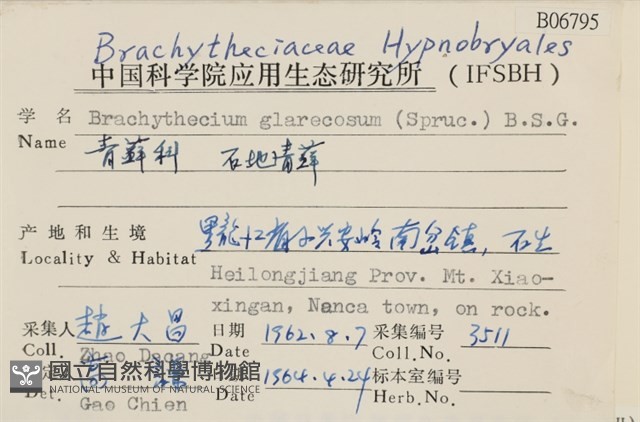 B06795
Brachytheciaceae Hypnobryales
中国科学院应用生态研究所 (IFSBH)
学 名 Brachythecium glarecosum (Spruc.) B.S.G.
Name 青藓科 石地青藓
产地和生境 黑龙江省小兴安岭南岔镇, 石生
Locality & Habitat Heilongjiang Prov. Mt. Xiao-
xingan, Nanca town, on rock.
采集人 赵大昌 日期 1962.8.7 采集编号 3511
Coll. Zhao Dacang Date Coll.No.
1964.4.24 标本室编号
Det. Gao Chien Date Herb.No.
國立自然科學博物館
NATIONAL MUSEUM OF NATURAL SCIENCE